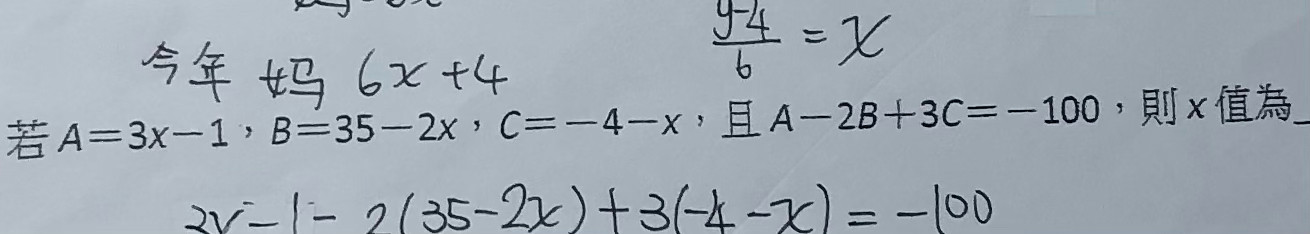 y-4
—— = x
6
今年 妈 6x+4
若 A=3x-1，B=35-2x，C=-4-x，且 A-2B+3C=-100，則 x 值為_
3x-1-2(35-2x)+3(-4-x)=-100